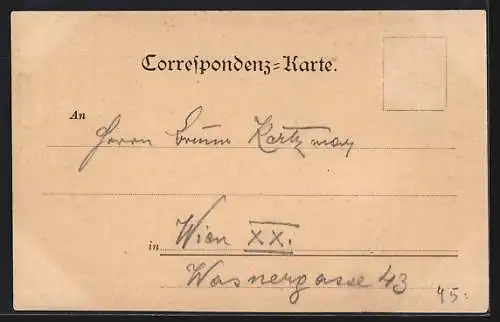 Correspondenz=Karte.
An
Herrn
in Wien XX.
Wasnergasse 43
45.